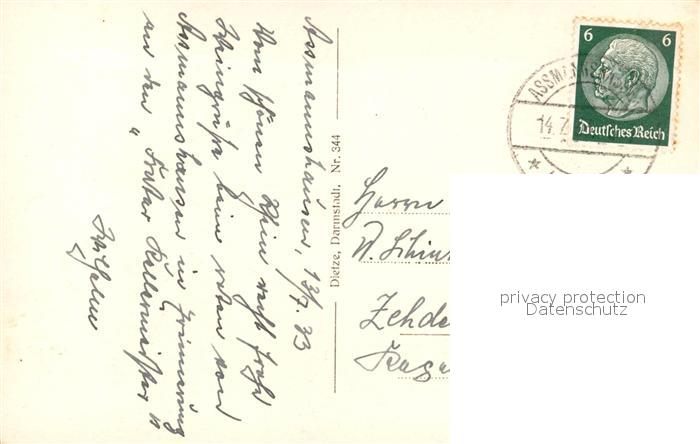 Assmannshausen, 13/7. 33
Vom schönen Rhein recht frohe
beim roten von
Assmannshausen in Erinnerung
an den "Frater Kellermeister"
Wilhelm
Dietze, Darmstadt. Nr. 344
6 6
Deutsches Reich
ASSMANNSH
14.7.
Herrn
W. Schin
Zehde
privacy protection
Datenschutz